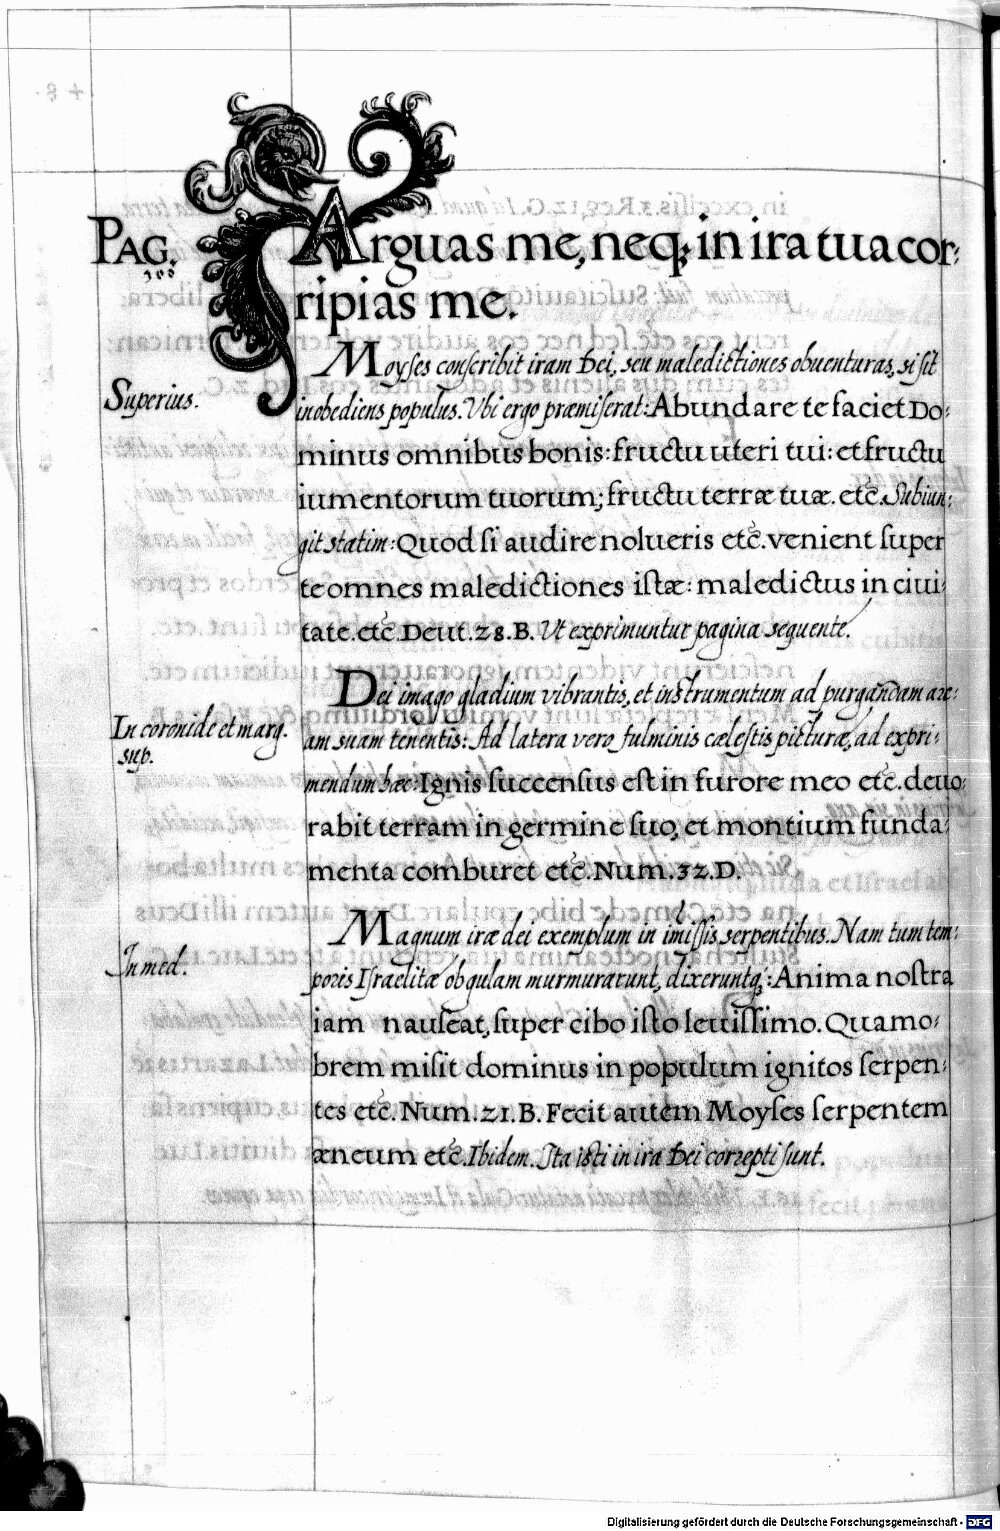 ·48·
PAG. Arguas me, neq; in ira tua cor:
300
ripias me.
Moyses conscribit iram Dei, seu maledictiones obuenturas, si sit
Superius.
inobediens populus. Vbi ergo præmiserat: Abundare te faciet Do:
minus omnibus bonis: fructu uteri tui: et fructu
iumentorum tuorum; fructu terræ tuæ. etc̃. Subiun:
git statim: Quod si audire nolueris etc̃. venient super
te omnes maledictiones istæ: maledictus in ciui:
tate. etc̃. Deut. 28. B. Vt exprimuntur pagina sequente.
Dei imago gladium vibrantis, et instrumentum ad purgandam are:
In coronide et marg.
sup.
am suam tenentis: Ad latera vero fulminis cælestis picturæ, ad expri:
mendum hæc: Ignis succensus est in furore meo etc̃. deuo:
rabit terram in germine suo, et montium funda:
menta comburet etc̃. Num. 32. D.
Magnum iræ dei exemplum in imissis serpentibus. Nam tum tem:
In med.
poris Israelitæ ob gulam murmurarunt, dixeruntq;: Anima nostra
iam nauseat, super cibo isto leuissimo. Quamo:
brem misit dominus in populum ignitos serpen:
tes etc̃. Num. 21. B. Fecit autem Moyses serpentem
æneum etc̃. Ibidem. Ita isti in ira Dei correpti sunt.
Digitalisierung gefördert durch die Deutsche Forschungsgemeinschaft - DFG